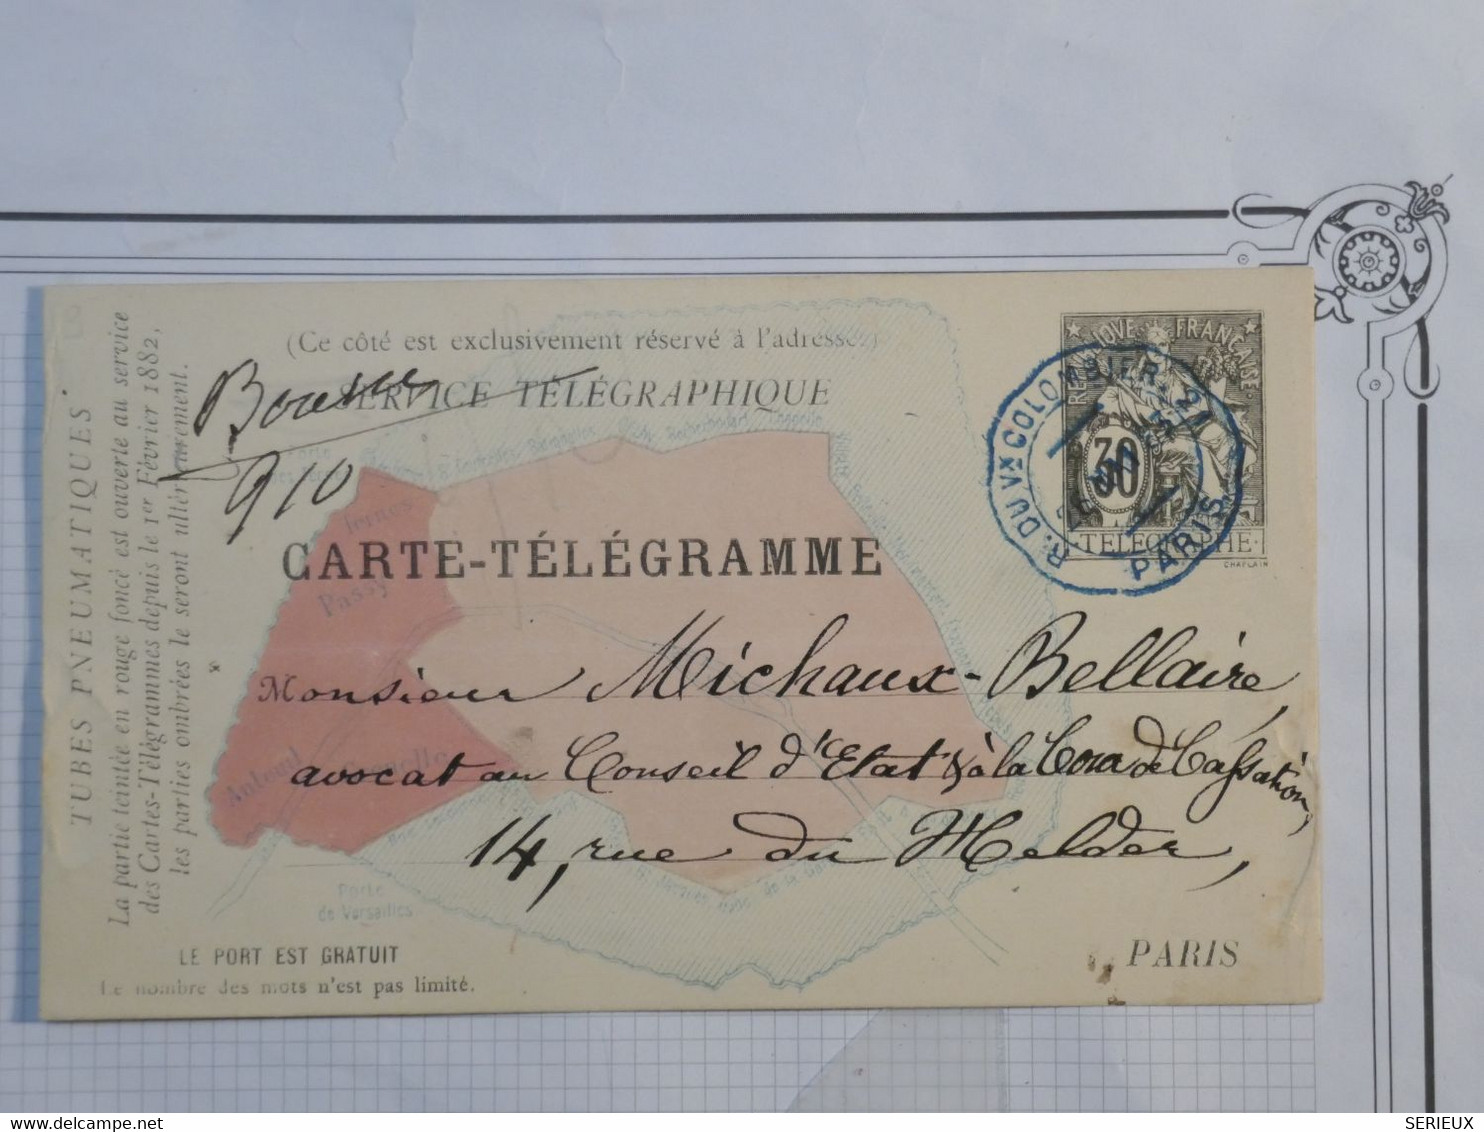 (Ce côté est exclusivement réservé à l'adresse.)
SERVICE TÉLÉGRAPHIQUE
TUBES PNEUMATIQUES
La partie teintée en rouge foncé est ouverte au service
des Cartes-Télégrammes depuis le 1er Février 1882,
les parties ombrées le seront ultérieurement.
910
REPUBLIQUE FRANÇAISE
30
TÉLÉGRAPHE
CHAPLAIN
R. DU Vx COLOMBIER 21
PARIS
Ternes
CARTE-TÉLÉGRAMME
Passy
Monsieur Michaux-Bellaire,
Auteuil Grenelle
avocat au Conseil d'Etat & à la Cour de Cassation,
14, rue du Helder,
Porte
de Versailles
PARIS
LE PORT EST GRATUIT
Le nombre des mots n'est pas limité.
delcampe.net
SERIEUX